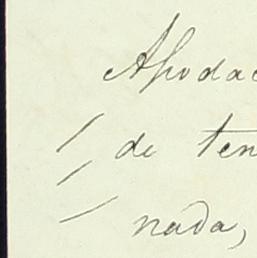 Apodac
/ de ten
nada,